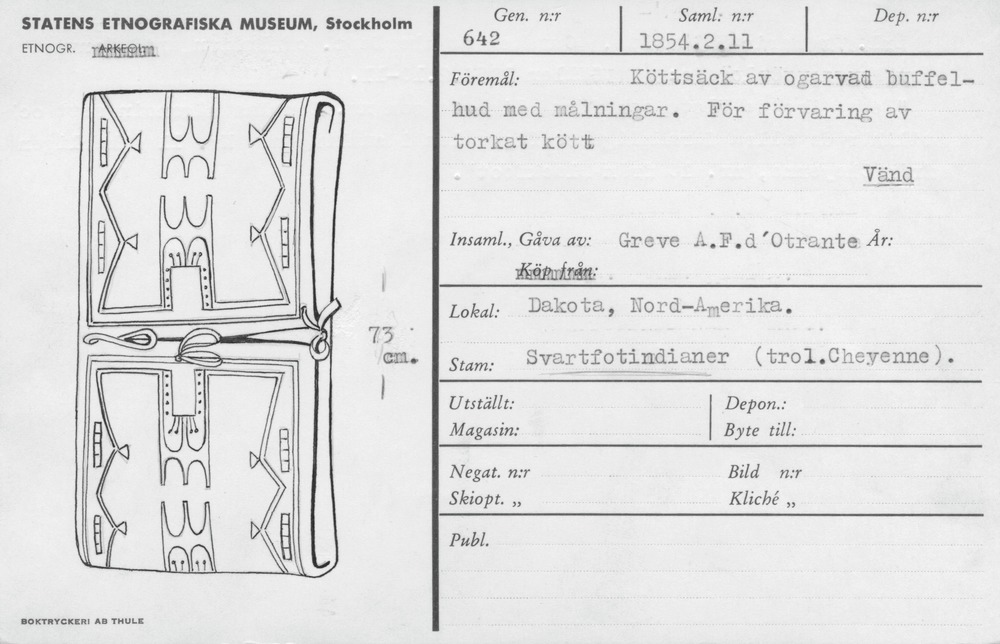 STATENS ETNOGRAFISKA MUSEUM, Stockholm
ETNOGR. ARKEOL.
Gen. n:r
642
Saml: n:r
1854.2.11
Dep. n:r
Föremål: Köttsäck av ogarvad buffel-
hud med målningar. För förvaring av
torkat kött
Vänd
Insaml., Gåva av: Greve A.F.d´Otrante År:
Köp från:
Lokal: Dakota, Nord-Amerika.
Stam: Svartfotindianer (trol.Cheyenne).
73
cm.
Utställt: Depon.:
Magasin: Byte till:
Negat. n:r Bild n:r
Skiopt. „ Kliché „
Publ.
BOKTRYCKERI AB THULE